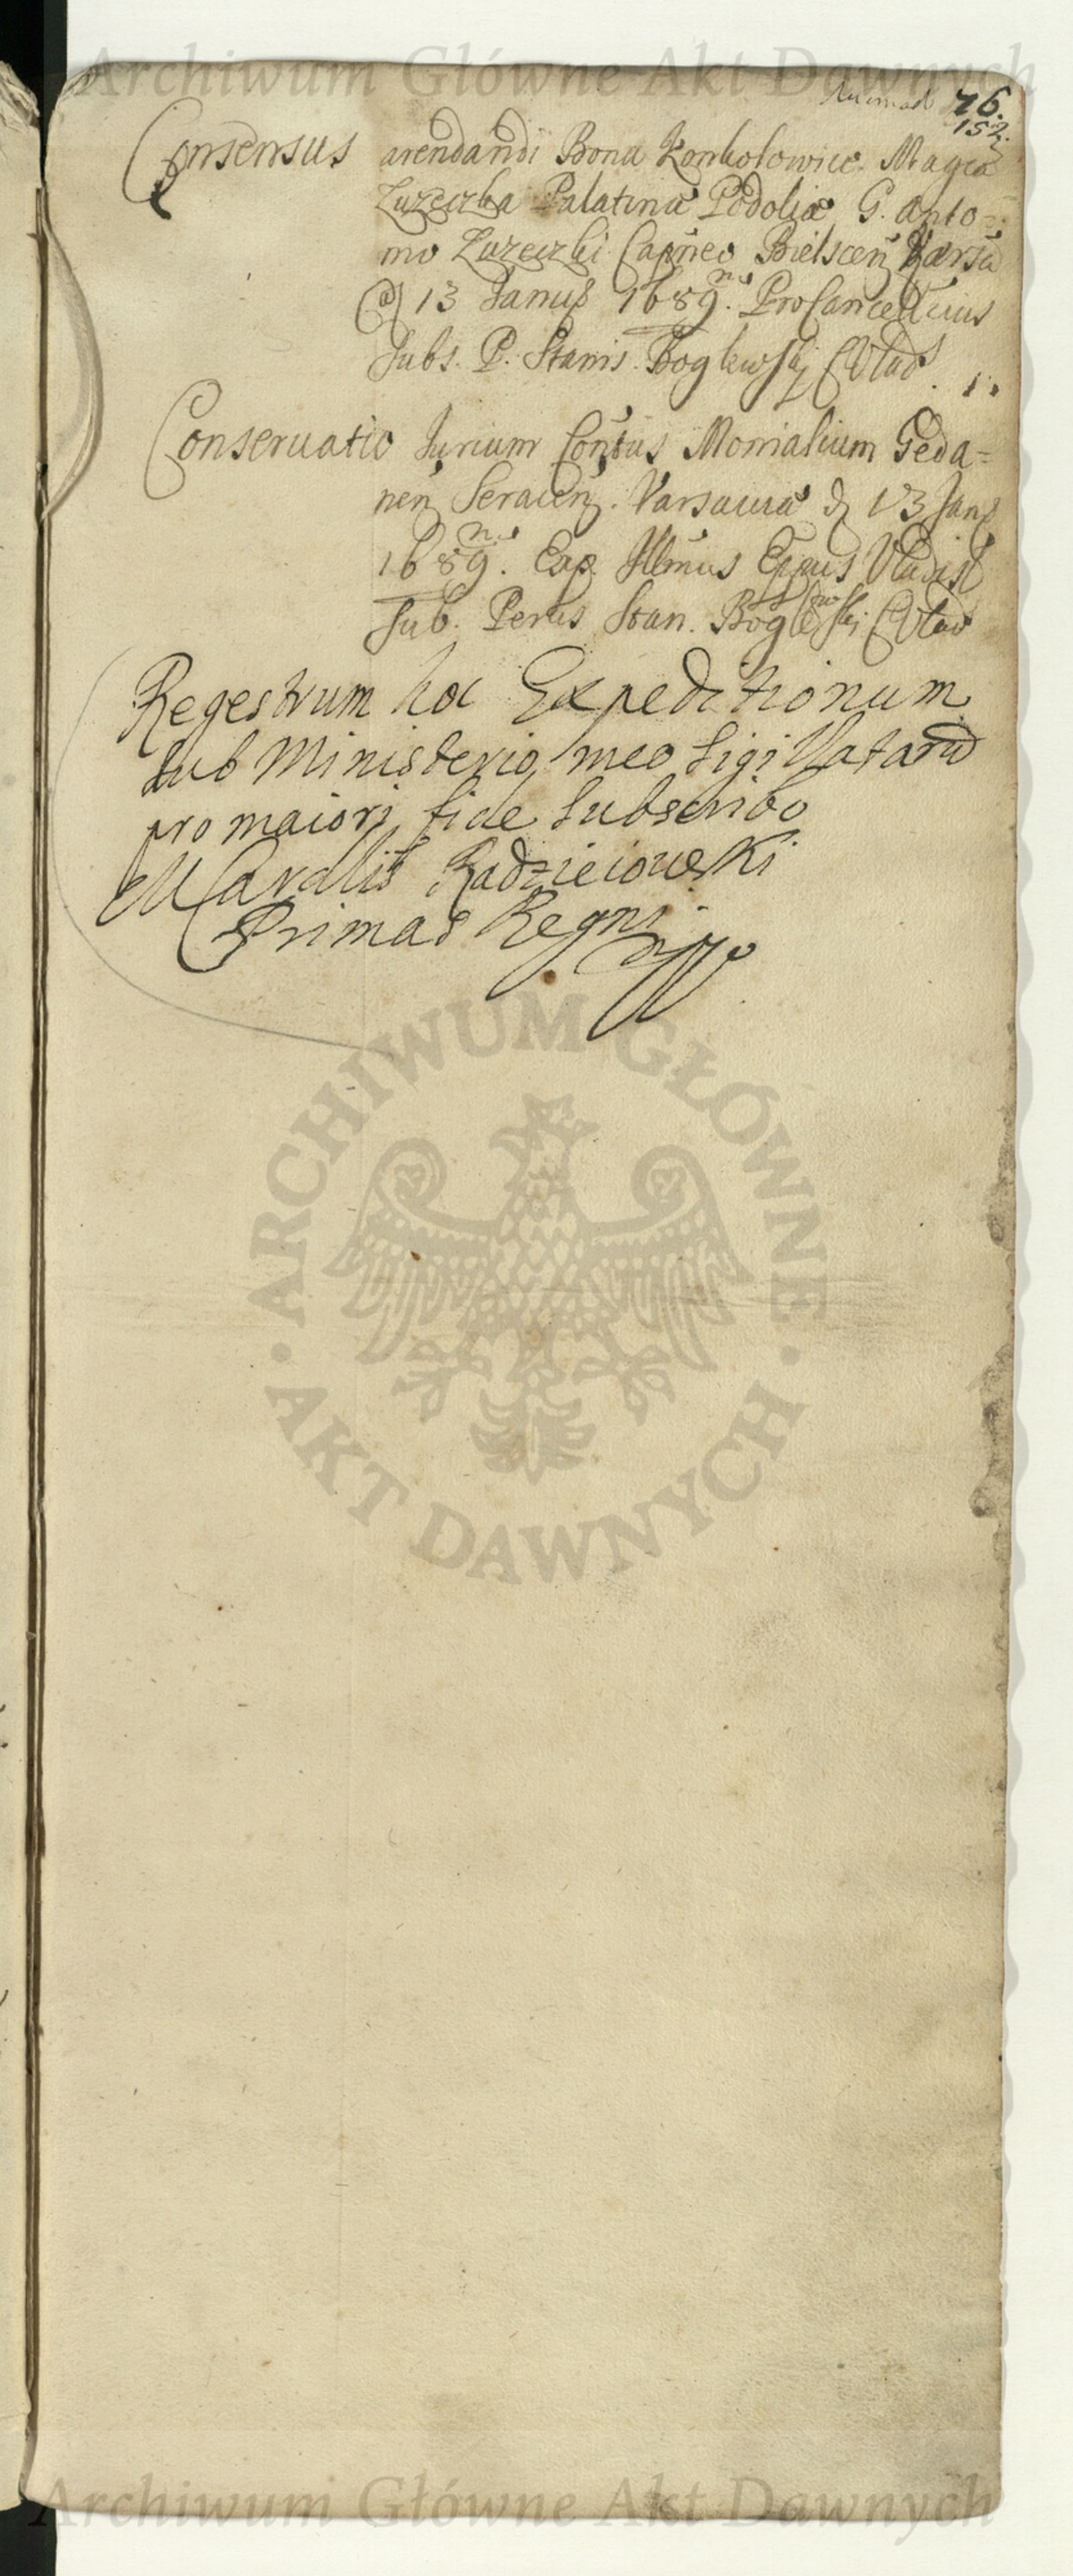 Archiwum Główne Akt Dawnych
76.
152.
Consensus arendandi Bona Konholowice Magca
Zuzeczka Palatina Podoliæ G. Anto=
nio Zuzeczki Capneo Bielscen Varsa
d 13 Janu 1689. n. ProCancellarius
Subs. P. Stanis. Boglewski CVlad. 1.
Conservatio Jurium Contus Monialium Geda=
nen Seraien. Varsaviæ d 13 Jan
1689. n. Exp. Illmus Eppus Vladisl
Sub. Perus Stan. Boglewski CVlad
Regestrum hoc Expeditionum
sub Ministerio meo Sigillatarum
pro maiori fide Subscribo
M Cardlis Radzieiowski
Primas Regni
ARCHIWUM GŁÓWNE
AKT DAWNYCH
Archiwum Główne Akt Dawnych